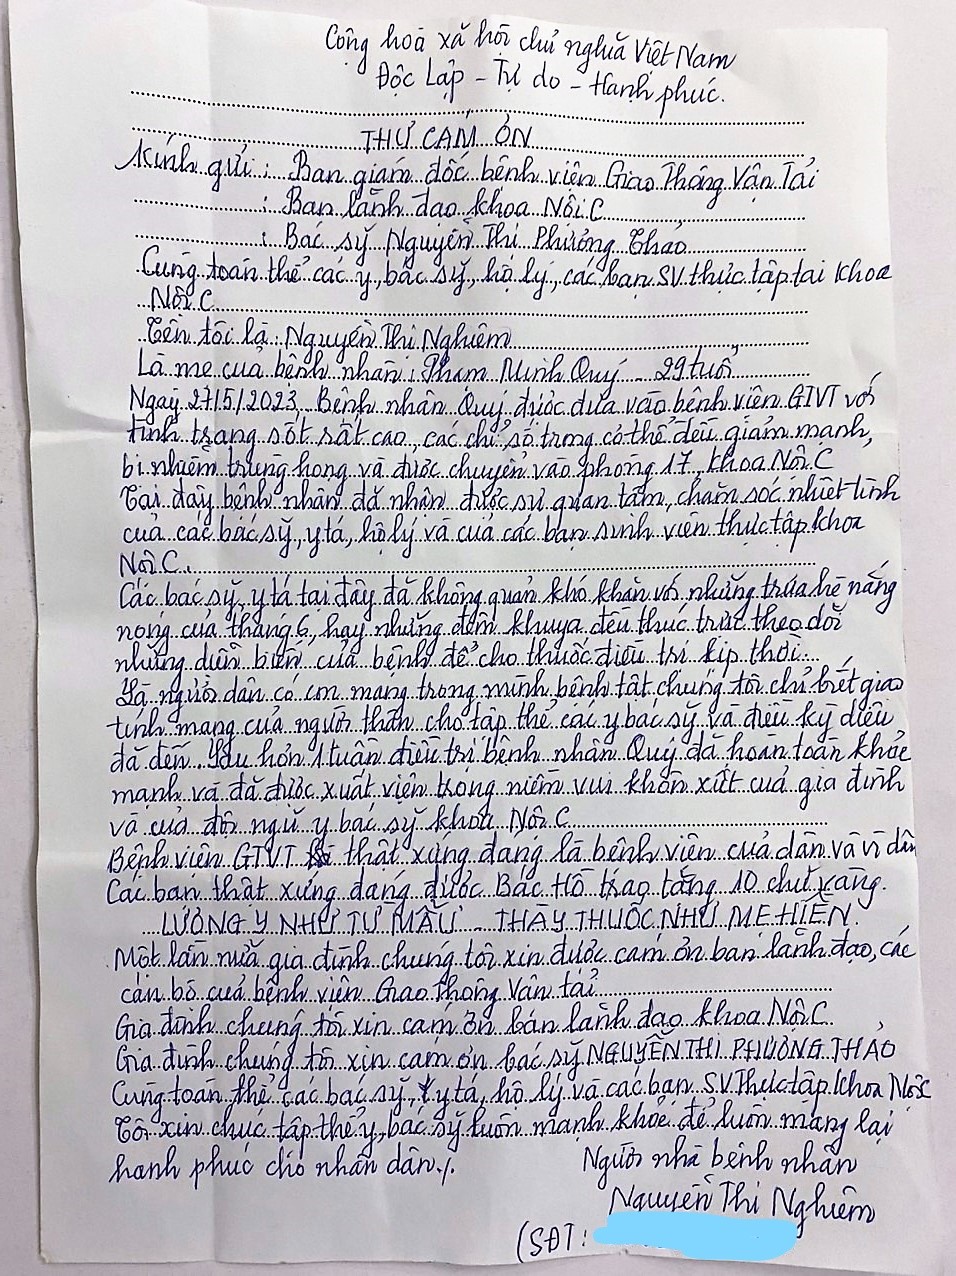 Cộng hoà xã hội chủ nghĩa Việt Nam
Độc Lập - Tự do - Hạnh phúc.
THƯ CẢM ƠN
Kính gửi : Ban giám đốc bệnh viện Giao Thông Vận Tải
: Ban lãnh đạo khoa Nội C
: Bác sỹ Nguyễn Thị Phương Thảo
Cùng toàn thể các y, bác sỹ, hộ lý, các bạn SV thực tập tại khoa
Nội C
Tên tôi là : Nguyễn Thị Nghiêm
Là mẹ của bệnh nhân : Phạm Minh Quý - 29 tuổi
Ngày 27/5/2023, Bệnh nhân Quý được đưa vào bệnh viện GTVT với
tình trạng sốt rất cao, các chỉ số trong cơ thể đều giảm mạnh,
bị nhiễm trùng họng và được chuyển vào phòng 17, khoa Nội C
Tại đây bệnh nhân đã nhận được sự quan tâm, chăm sóc nhiệt tình
của các bác sỹ, y tá, hộ lý và của các bạn sinh viên thực tập khoa
Nội C.
Các bác sỹ, y tá tại đây đã không quản khó khăn với những trưa hè nắng
nóng của tháng 6, hay những đêm khuya đều thức trực theo dõi
những diễn biến của bệnh để cho thuốc điều trị kịp thời.
Là người dân có cm mang trong mình bệnh tật chúng tôi chỉ biết giao
tính mạng của người thân cho tập thể các y bác sỹ và điều kỳ diệu
đã đến. Sau hơn 1 tuần điều trị bệnh nhân Quý đã hoàn toàn khỏe
mạnh và đã được xuất viện trong niềm vui khôn xiết của gia đình
và của đội ngũ y bác sỹ khoa Nội C
Bệnh viện GTVT thật xứng đáng là bệnh viện của dân và vì dân
Các bạn thật xứng đáng được Bác Hồ trao tặng 10 chữ vàng.
LƯƠNG Y NHƯ TỪ MẪU - THẦY THUỐC NHƯ MẸ HIỀN
Một lần nữa gia đình chúng tôi xin được cảm ơn ban lãnh đạo, các
cán bộ của bệnh viện Giao thông Vận tải
Gia đình chúng tôi xin cảm ơn ban lãnh đạo khoa Nội C
Gia đình chúng tôi xin cảm ơn bác sỹ NGUYỄN THỊ PHƯƠNG THẢO
Cùng toàn thể các bác sỹ, y tá, hộ lý và các bạn SV Thực tập khoa Nội C
Tôi xin chúc tập thể y, bác sỹ luôn mạnh khoẻ để luôn mang lại
hạnh phúc cho nhân dân./.
Người nhà bệnh nhân
Nguyễn Thị Nghiêm
(SĐT :